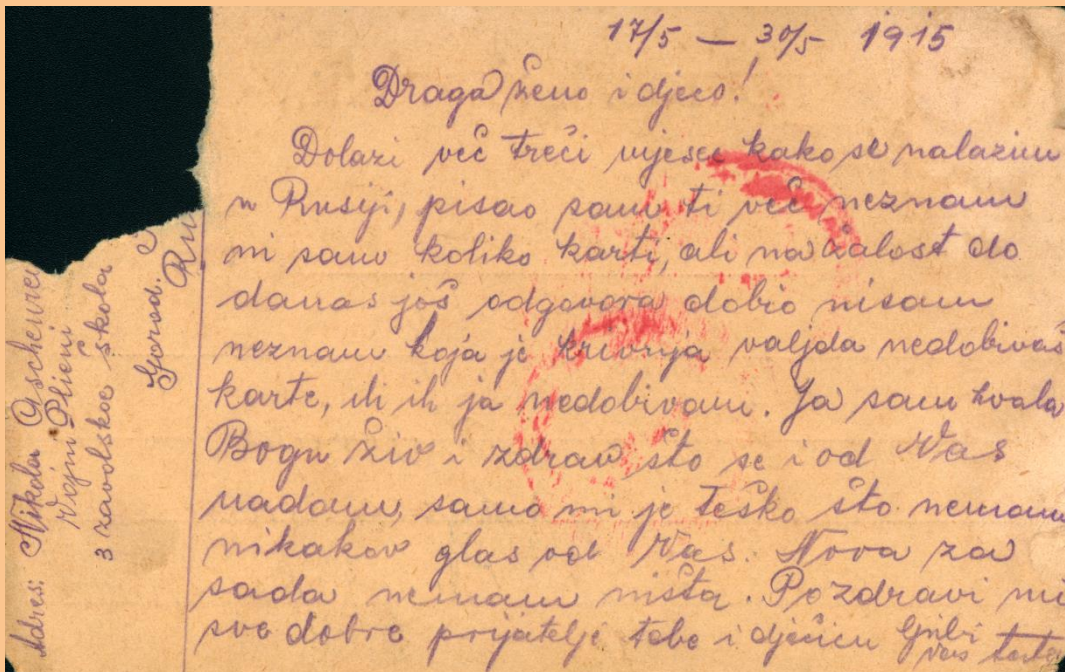 17/5 — 30/5 1915
Draga ženo i djeco!
Dolazi več treči mjesec kako se nalazim
u Rusiji, pisao sam ti več neznam
ni sam koliko karti, ali na žalost do
danas još odgovora dobio nisam
neznam koja je krivnja valjda nedobivaš
karte, ili ih ja nedobivam. Ja sam hvala
Bogu živ i zdrav, što se i od Vas
nadam, samo mi je teško što nemam
nikakov glas od Vas. Nova za
sada nemam ništa. Pozdravi mi
sve dobre prijatelje tebe i dječicu ljubi
Vas
Adres: Nikola
Vojni Plieni
3 zavolskoe škola
Gorod.
Ru